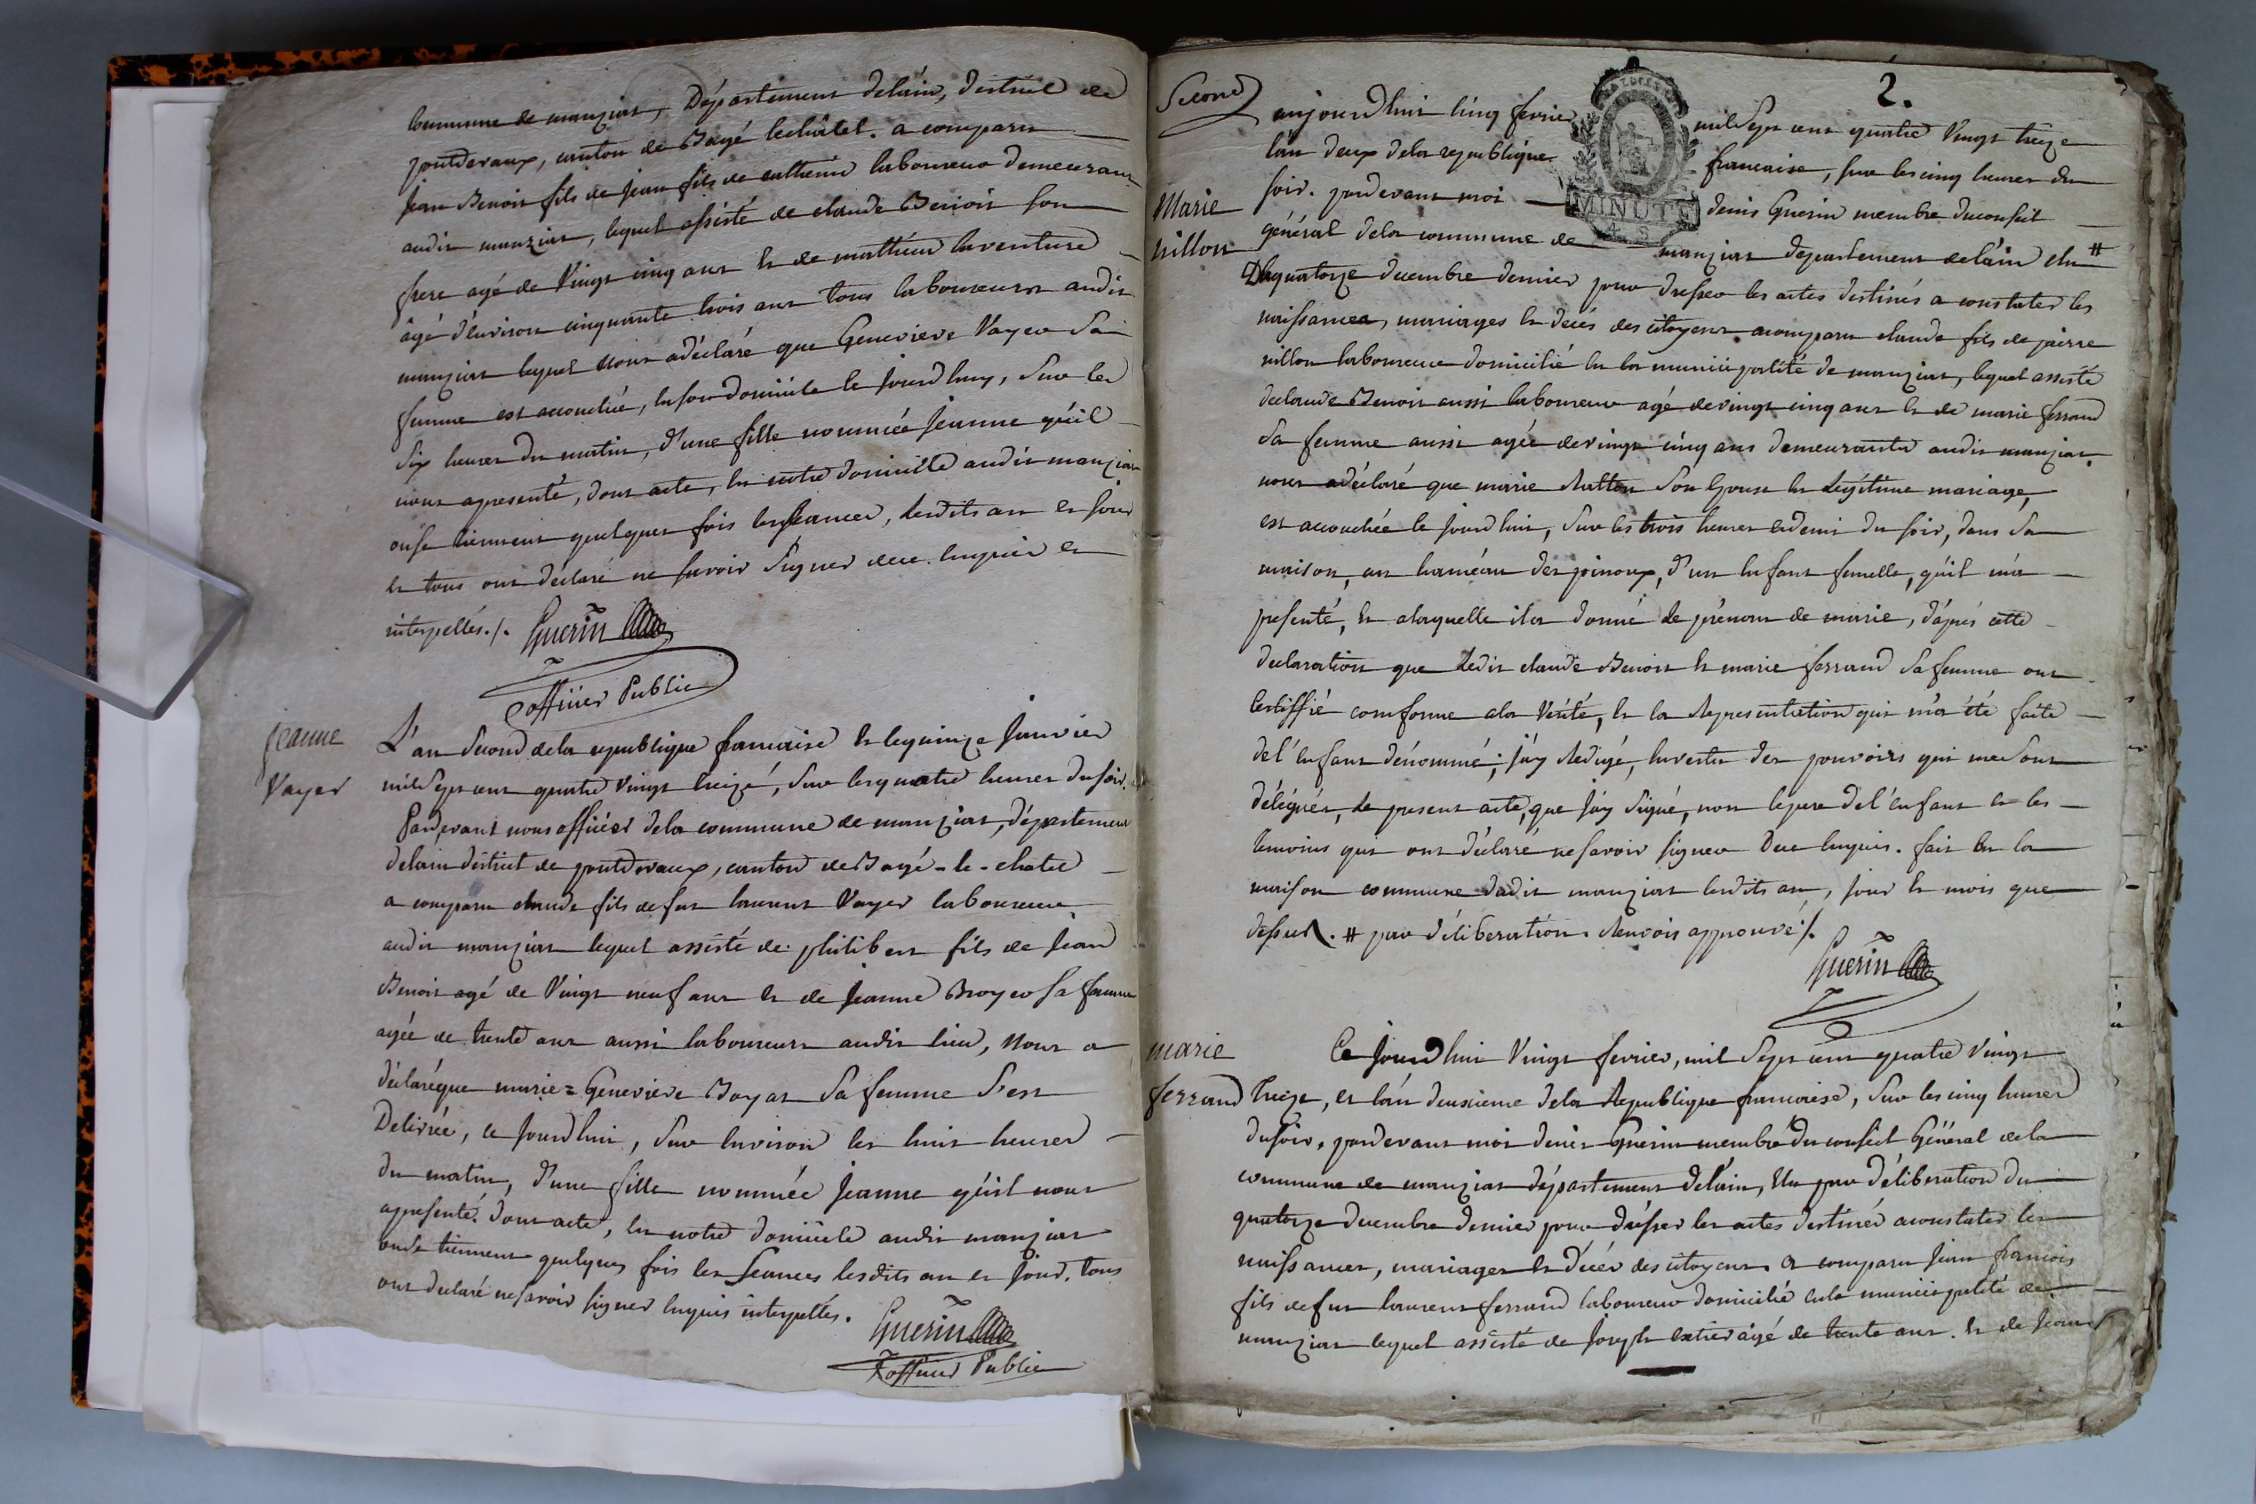 Commune de manziat, Département delain, district de
pontdevaux, canton de Bagé lechâtel. a comparu
Jean Benoit fils de Jean fils de laboureur demeurant
audit manziat, lequel assisté de claude Benoit son
frere agé de Vingt cinq ans et de mathieu laventure
âgé d'environ cinquante trois ans tous laboureurs audit
manziat lequel nous adéclaré que Genevieve Vayer Sa
femme est accouchée, en son domicile le jourdhuy, Sur les
Six heures du matin, d'une fille nommée Jeanne qu'il
nous apresenté, dont acte, en notre domicile audit manziat
ou se tiennent quelques fois les seances, lesdits an et jour
et tous ont déclaré ne savoir Signer de ce enquis et
interpellés./. Guerin
officier Public
jeanne
Vayer
L'an Second dela republique francaise et lequinze Janvier
mil Sept cent quatre vingt treize, Sur lesquatre heures du soir.
Pardevant nous officier dela commune de manziat, département
delain district de pontdevaux, canton de Bagé-le-chatel
a comparu claude fils de feu laurent Vayer laboureur
audit manziat lequel assisté de philibert fils de Jean
Benoit agé de Vingt neuf ans et de Jeanne Broyer sa femme
agée de trente ans aussi laboureurs audit lieu, nous a
déclaréque marie=Genevieve Boyat Sa femme S'est
Delivrée, ce jourdhui, Sur environ les huit heures
du matin, d'une fille nommée Jeanne qu'il nous
apresenté. dont acte, en notre domicile audit manziat
ou se tiennent quelques fois les Seances lesdits an et jour, tous
ont declaré ne savoir signer enquis interpellés.
Guerin
officier Public
2.
Second
MINUTE
4. S
aujourdhui cinq fevrier mil Sept cent quatre Vingt treize
lan deux dela republique francaise, sur les cinq heures du
soir. pardevant moi denis Guerin membre du conseil
Marie
nillon
général dela commune de manziat département delain elu #
Du quatorze decembre dernier pour dresser les actes destinés a constater les
naissances, mariages et decés des citoyens acomparu claude fils de pierre
nillon laboureur domicilié en la municipalité de manziat, lequel assisté
declaude Benoit aussi laboureur agé devingt cinq ans et de marie ferrand
Sa femme aussi agée devingt cinq ans demeurants audit manziat,
nous adéclaré que marie Son Epouse en légitime mariage,
est accouchée le jourdhui, Sur les trois heures et demi du soir, dans Sa
maison, au haméau des pinoux, d'un enfant femelle, qu'il m'a
presenté, et alaquelle il a donné le prénom de marie, d'aprés cette
declaration que ledit claude Benoit et marie ferrand Sa femme ont
Certiffié conforme ala Verité, et la Representation qui m'a été faite
de l'enfant dénommé; j'ay Redigé, en vertu des pouvoirs qui me sont
délégués, le present acte, que j'ay Signé, non lepere de l'enfant et les
temoins qui ont déclaré ne savoir signer De ce enquis. fait en la
maison commune dudit manziat lesdits an, jour et mois que
dessus. # par déliberation Renvois approuvé./.
Guerin
marie
ferrand
Ce jourdhui Vingt fevrier, mil Sept cent quatre vingt
treize, et l'an deuxieme dela Republique francaise, Sur les cinq heures
du soir, pardevant moi denis Guerin membre du conseil Général dela
commune de manziat département delain, Elu par déliberation du
quatorze decembre dernier pour drésser les actes destinés aconstater les
naissances, mariages et décés des citoyens a comparu Jean francois
fils de feu laurent ferrand laboureur domicilié enla municipalité de
manziat lequel assisté de Joseph agé de trente ans. et de Jeanne